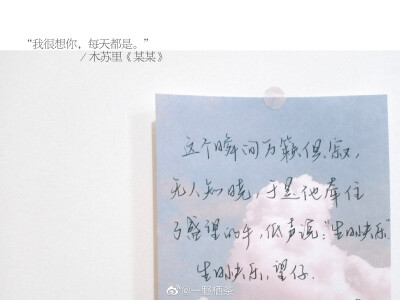 “我很想你，每天都是。”
／木苏里《某某》
这个瞬间万籁俱寂，
无人知晓，于是他牵住
了盛望的手，低声说：“生日快乐”
生日快乐，望仔.
@一野栖茶